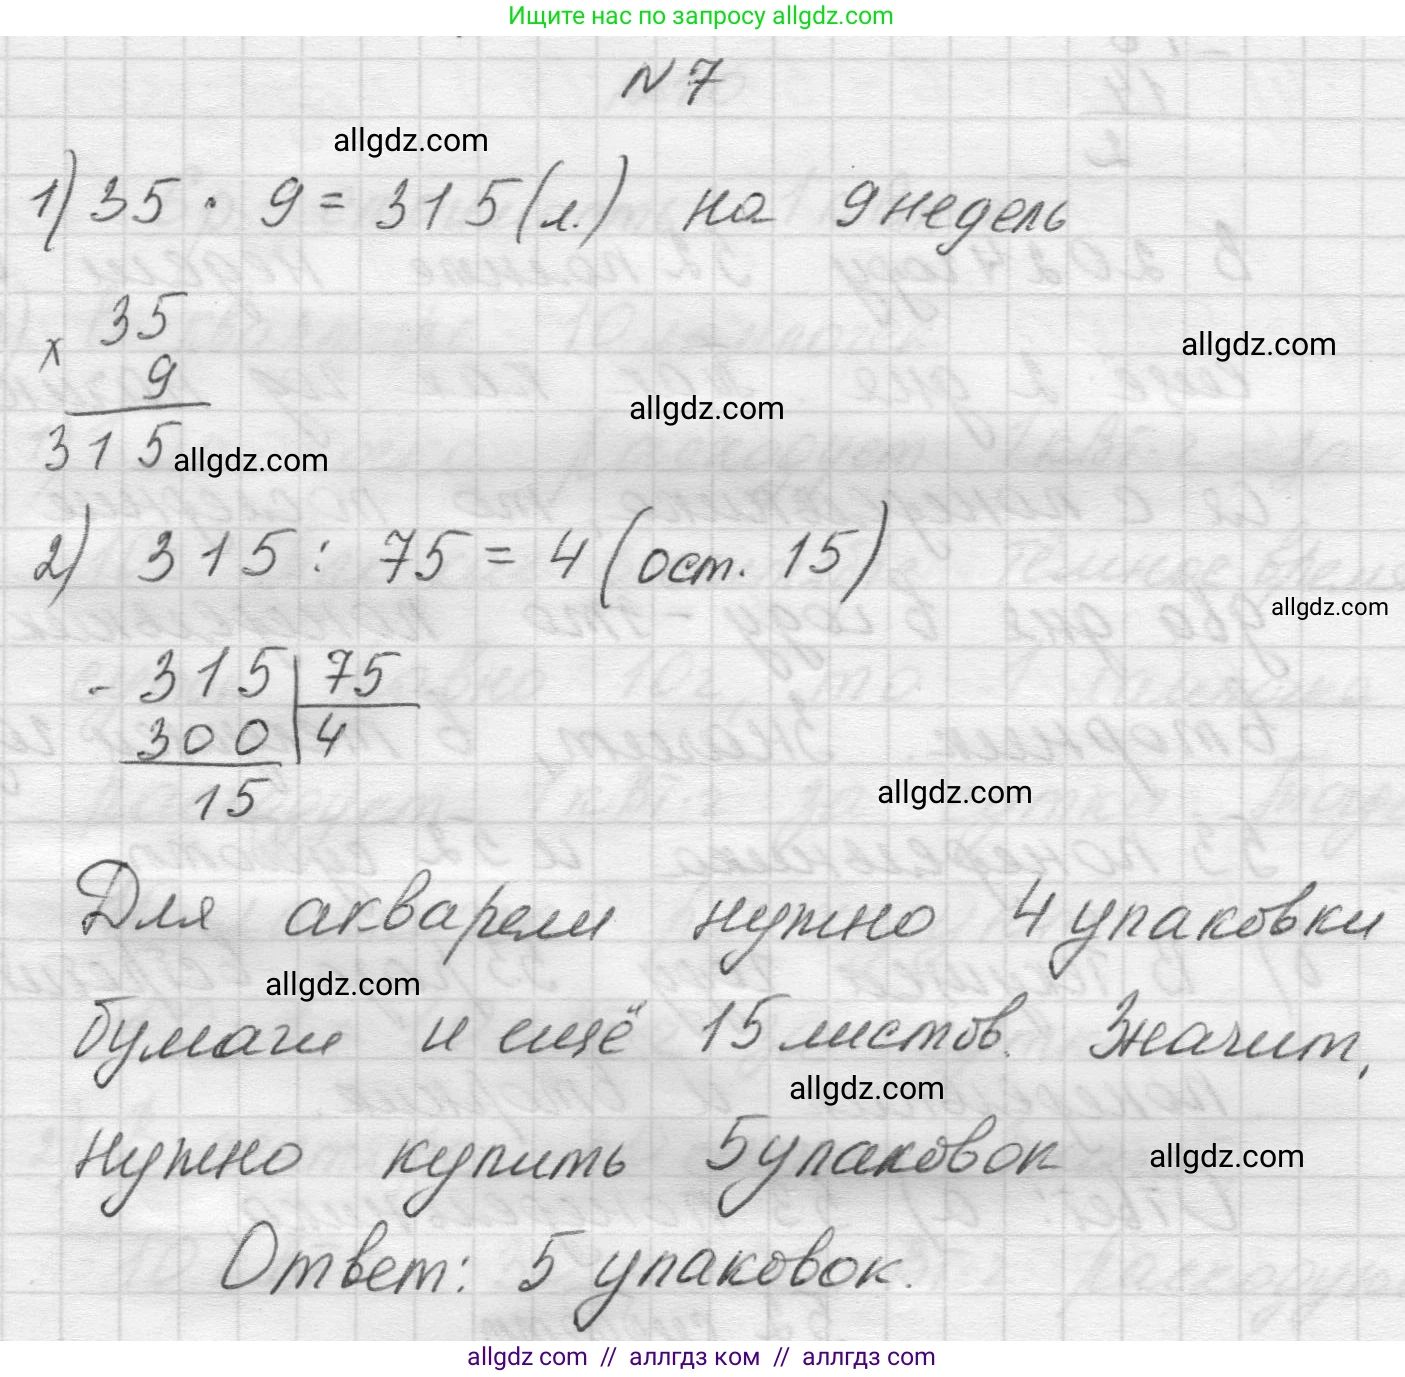 Ищите нас по запросу allgdz.com
N 7
allgdz.com
1) 35 · 9 = 315 (л.) на 9 недель
x 35
allgdz.com
9
allgdz.com
315
allgdz.com
2) 315 : 75 = 4 (ост. 15)
allgdz.com
- 315 | 75
300 | 4
15
allgdz.com
Для акварели нужно 4 упаковки
allgdz.com
бумаги и ещё 15 листов. Значит,
allgdz.com
нужно купить 5 упаковок
allgdz.com
Ответ: 5 упаковок.
allgdz com // аллгдз ком // аллгдз com